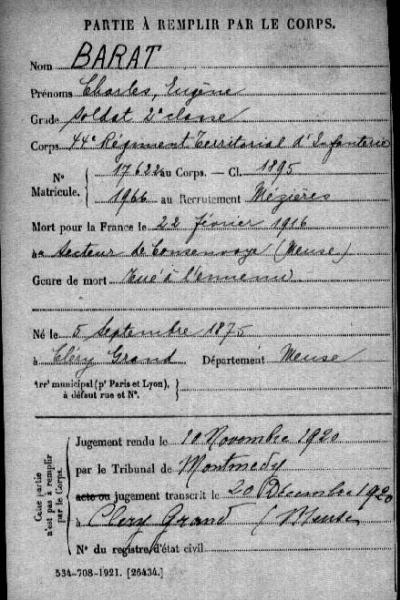 PARTIE À REMPLIR PAR LE CORPS.
Nom BARAT
Prénoms Charles, Eugène
Grade soldat 2e classe
Corps 44e Régiment Territorial d'Infanterie
N° Matricule. { 17622 au Corps. — Cl. 1895
1966 au Recrutement Mézières
Mort pour la France le 22 février 1916
à Secteur de Consenvoye (Meuse)
Genre de mort Tué à l'ennemi
Né le 5 Septembre 1875
à Cléry Grand Département Meuse
Arr' municipal (p' Paris et Lyon), à défaut rue et N°. }
Cette partie n'est pas à remplir par le Corps.
Jugement rendu le 10 Novembre 1920
par le Tribunal de Montmedy
acte ou jugement transcrit le 20 Décembre 1920
à Clery Grand (Meuse
N° du registre d'état civil
534-708-1921. [26434.]